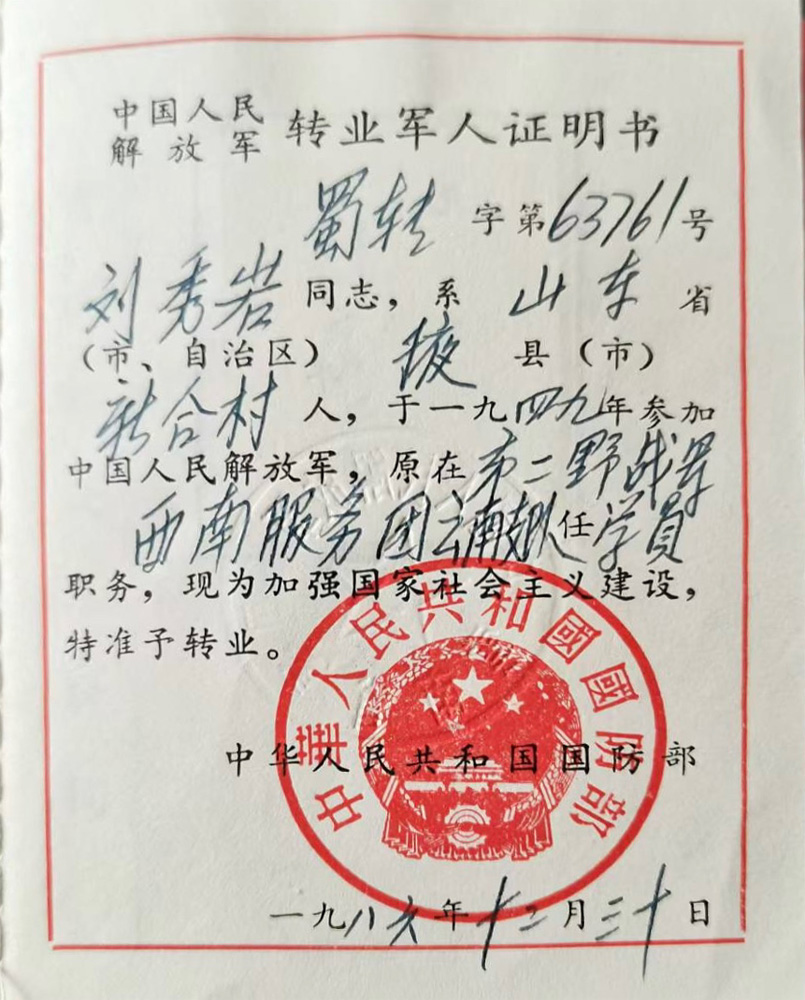 中国人民解放军 转业军人证明书
蜀转 字第63761号
刘秀岩同志，系 山东 省
（市、自治区） 掖 县（市）
新合村 人，于一九四九年参加
中国人民解放军，原在第二野战军
西南服务团云南支队任学员
职务，现为加强国家社会主义建设，
特准予转业。
中华人民共和国国防部
中華人民共和國國防部
一九八六年十二月三十日